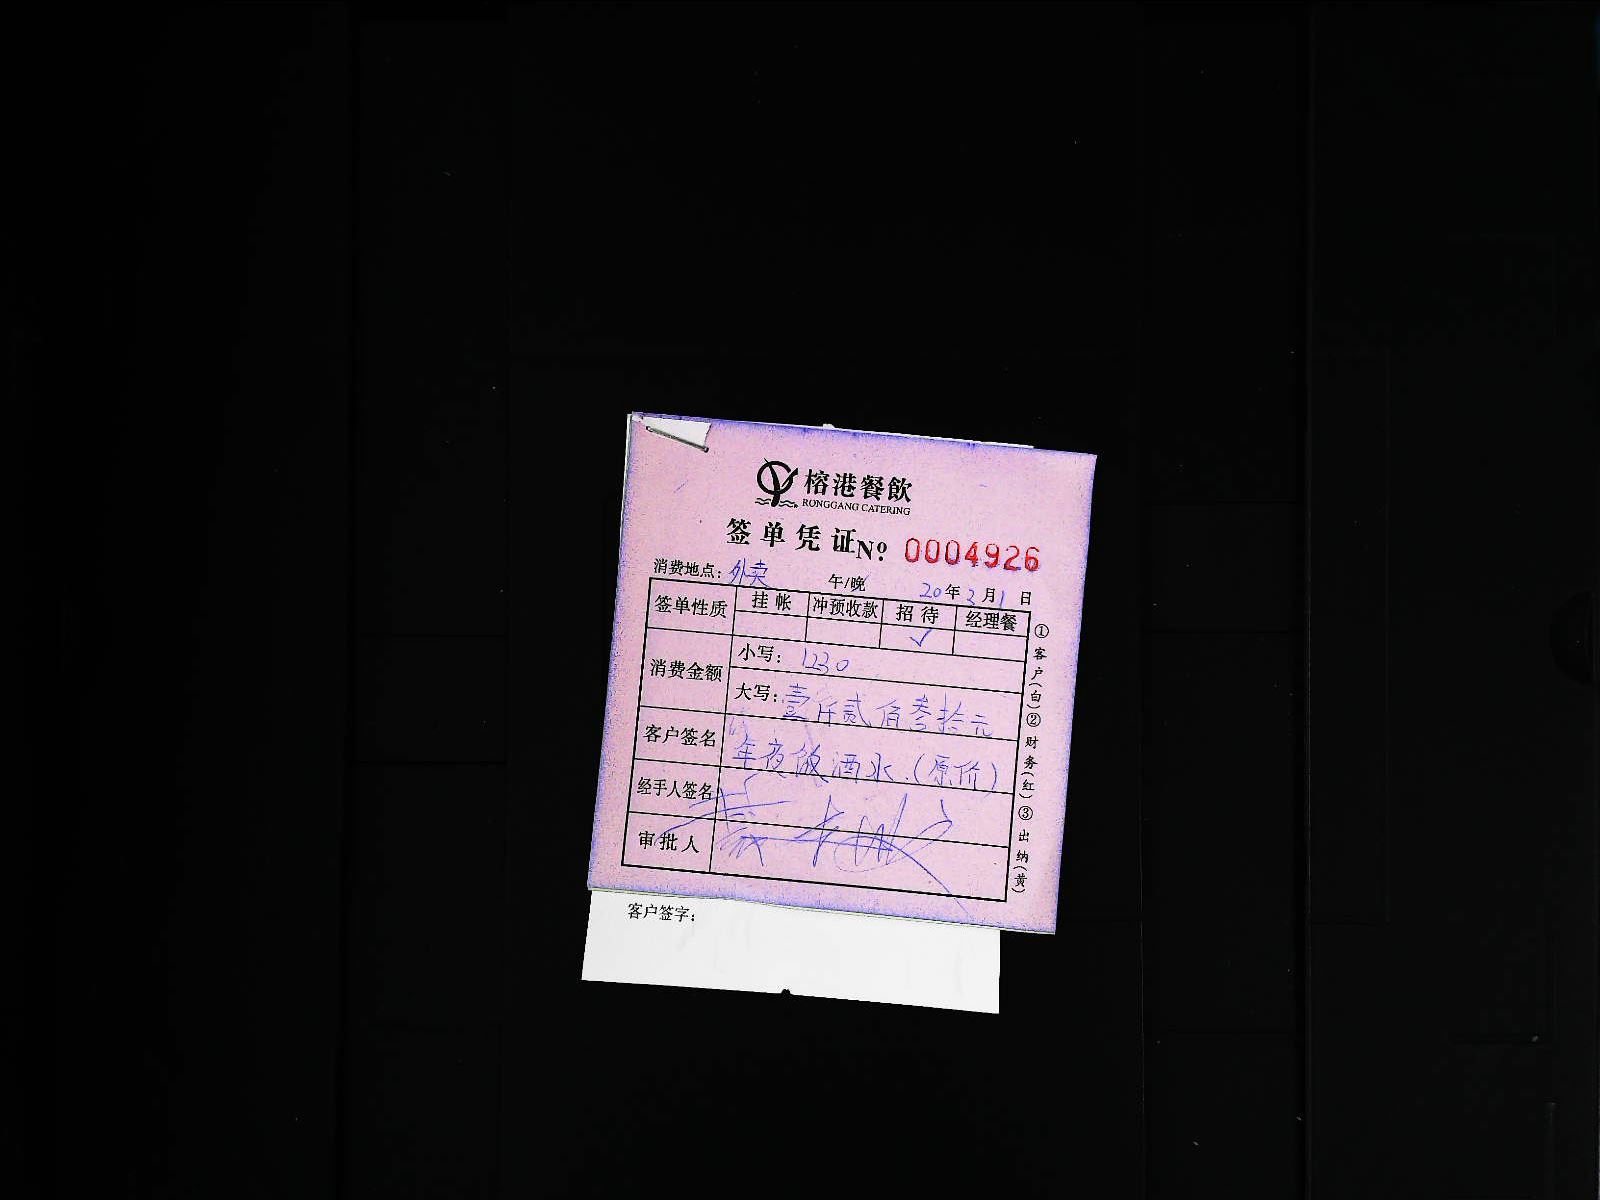 榕港餐飲
RONGGANG CATERING
签单凭证 Nº 0004926
消费地点：外卖 午/晚 20年2月1日
签单性质 挂帐 冲预收款 招待 经理餐
√
消费金额 小写：1230
大写：壹仟贰佰叁拾元
客户签名 年夜饭酒水（原价）
经手人签名
审批人
①客户（白）②财务（红）③出纳（黄）
客户签字：